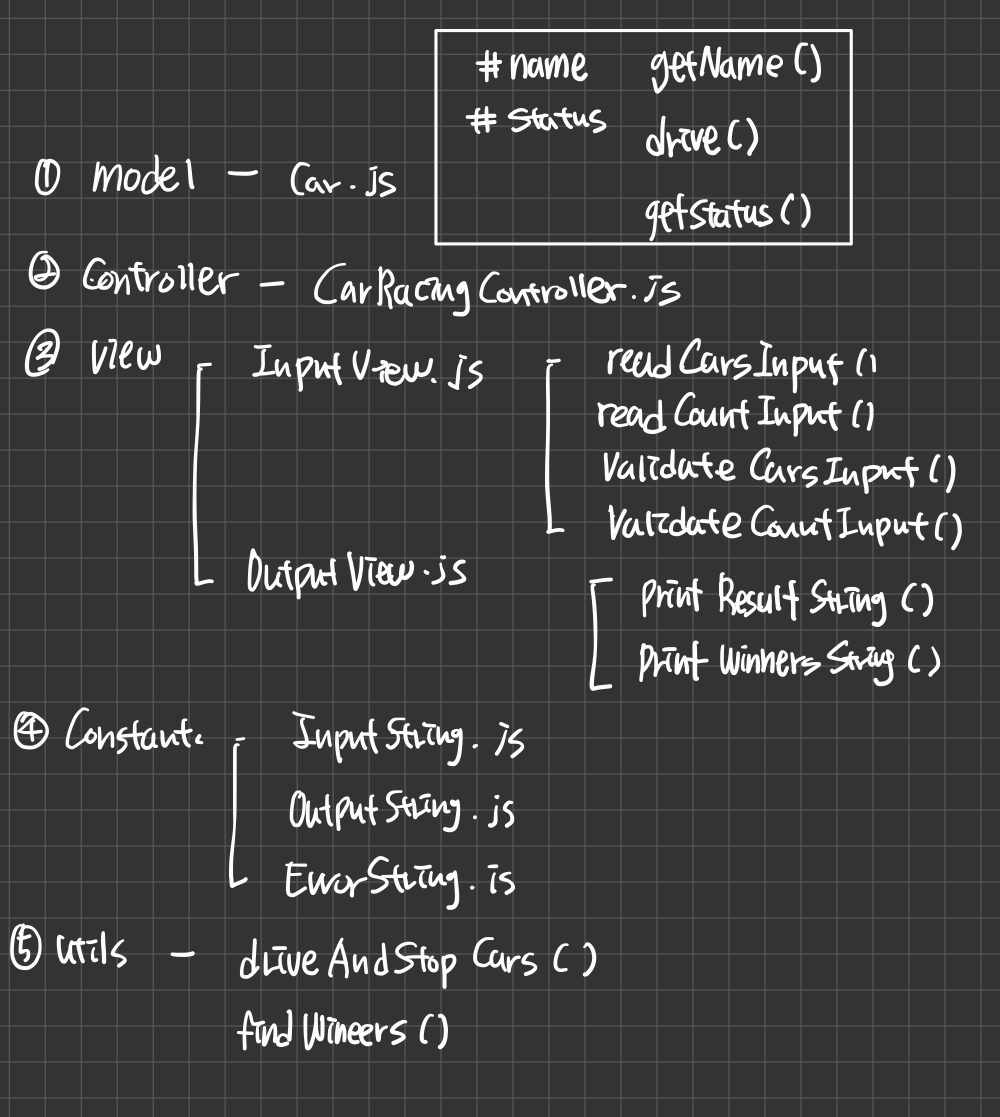 # name getName()
# status drive()
① model - Car.js
getStatus()
② Controller - CarRacingController.js
③ View InputView.js readCarsInput()
readCountInput()
Validate CarsInput()
Validate CountInput()
OutputView.js
Print Result String ()
Print Winners String ()
④ Constant. InputString.js
OutputString.js
ErrorString.js
⑤ utils - driveAndStop Cars ()
find Wineers ()